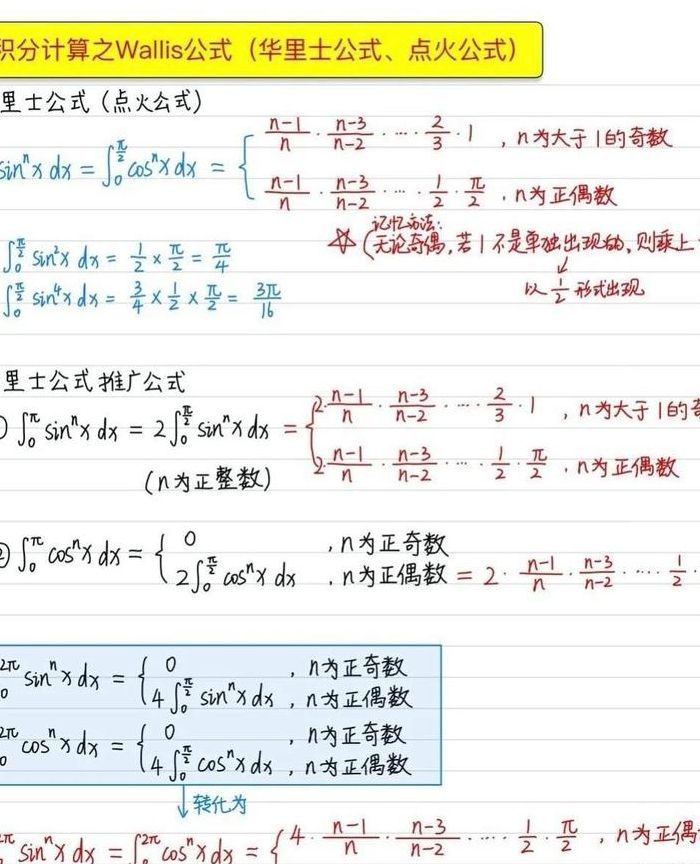 积分计算之Wallis公式（华里士公式、点火公式）
里士公式（点火公式）
sinⁿx dx = ∫₀^{π/2} cosⁿx dx = { (n-1)/n · (n-3)/(n-2) · ⋯ · 2/3 · 1 ，n为大于1的奇数
(n-1)/n · (n-3)/(n-2) · ⋯ · 1/2 · π/2 ，n为正偶数
☆ 记忆方法：
(无论奇偶，若1不是单独出现的，则乘上
∫₀^{π/2} sin²x dx = 1/2 × π/2 = π/4
以 1/2 形式出现
∫₀^{π/2} sin⁴x dx = 3/4 × 1/2 × π/2 = 3π/16
里士公式推广公式
∫₀^π sinⁿx dx = 2∫₀^{π/2} sinⁿx dx = { 2·(n-1)/n · (n-3)/(n-2) · ⋯ · 2/3 · 1 ，n为大于1的奇
2·(n-1)/n · (n-3)/(n-2) · ⋯ · 1/2 · π/2 ，n为正偶数
(n为正整数)
② ∫₀^π cosⁿx dx = { 0 ，n为正奇数
2∫₀^{π/2} cosⁿx dx ，n为正偶数 = 2 · (n-1)/n · (n-3)/(n-2) · ⋯ · 1/2 ·
2π 0 sinⁿx dx = { 0 ，n为正奇数
4∫₀^{π/2} sinⁿx dx ，n为正偶数
2π 0 cosⁿx dx = { 0 ，n为正奇数
4∫₀^{π/2} cosⁿx dx ，n为正偶数
↓ 转化为
2π sinⁿx dx = ∫₀^{2π} cosⁿx dx = { 4 · (n-1)/n · (n-3)/(n-2) · ⋯ · 1/2 · π/2 ，n为正偶